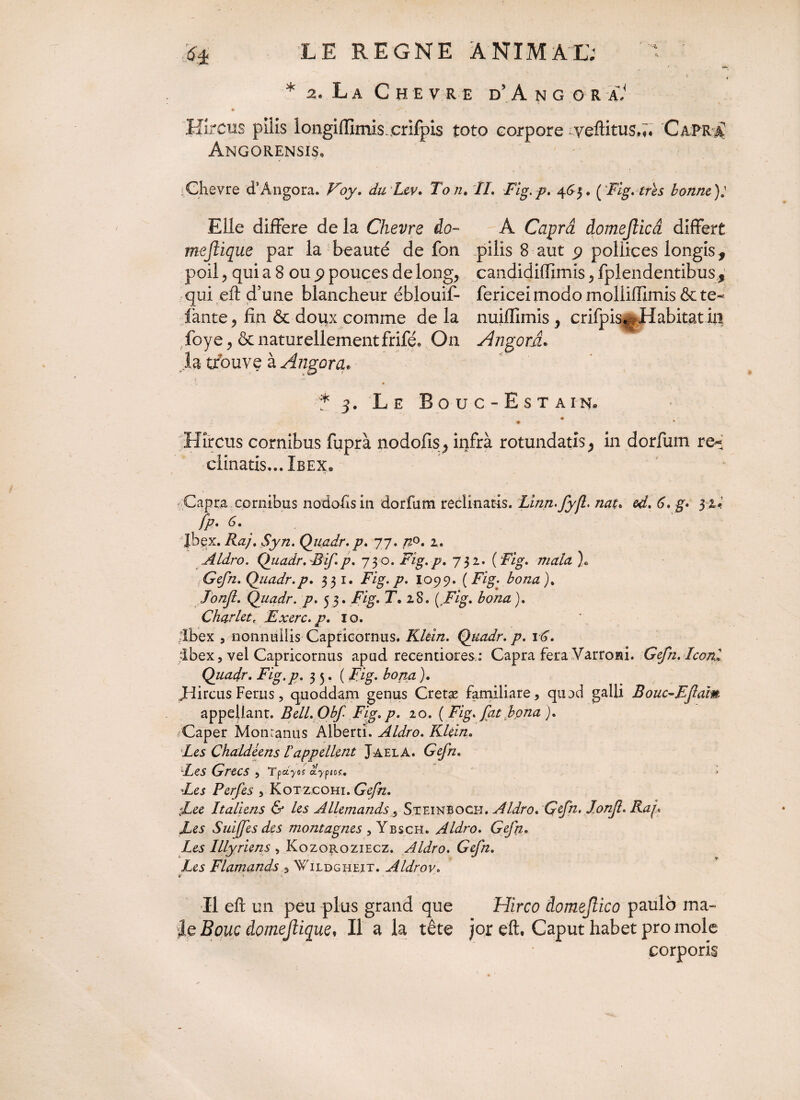 64 LE REGNE ANIMAL;
* 2. LA CHEVRE D'ANGORA.
Hircus pilis longiſſimis criſpis toto corpore veſtitus... CAPRA
ANGORENSIS.
Chevre d'Angora. Voy. du Lev. Ton. II. Fig. p. 463. (Fig. très bonne).
Elle differe de la Chevre do-
meſtique par la beauté de ſon
poil, qui a 8 ou 9 pouces de long,
qui eſt d'une blancheur éblouiſ-
ſante, fin & doux comme de la
ſoye, & naturellement friſé. On
la trouve à Angora.
A Caprâ domeſticâ differt
pilis 8 aut 9 pollices longis,
candidiſſimis, ſplendentibus,
ſericei modo molliſſimis & te-
nuiſſimis, criſpis. Habitat in
Angorâ.
* 3. LE BOUC-ESTAIN.
Hircus cornibus ſuprà nodoſis, infrà rotundatis, in dorſum re-
clinatis... IBEX.
Capra cornibus nodoſis in dorſum reclinatis. Linn. ſyſt. nat. ed. 6. g. 32.
ſp. 6.
Ibex. Raj. Syn. Quadr. p. 77. nº. 2.
Aldro. Quadr. Biſ. p. 730. Fig. p. 732. (Fig. mala).
Geſn. Quadr. p. 331. Fig. p. 1099. (Fig. bona).
Jonſt. Quadr. p. 53. Fig. T. 28. (Fig. bona).
Charlet. Exerc. p. 10.
Ibex, nonnullis Capricornus. Klein. Quadr. p. 16.
Ibex, vel Capricornus apud recentiores: Capra fera Varroni. Geſn. Icon.
Quadr. Fig. p. 35. (Fig. bona).
Hircus Ferus, quoddam genus Cretæ familiare, quod galli Bouc-Eſtain
appellant. Bell. Obſ. Fig. p. 20. (Fig. ſat bona).
Caper Montanus Alberti. Aldro. Klein.
Les Chaldéens l'appellent JAELA. Geſn.
Les Grecs, Τράγος ἄγριος.
Les Perſes, KOTZCOHI. Geſn.
Lee Italiens & les Allemands, STEINBOCH. Aldro. Geſn. Jonſt. Raj.
Les Suiſſes des montagnes, YBSCH. Aldro. Geſn.
Les Illyriens, KOZOROZIECZ. Aldro. Geſn.
Les Flamands, WILDGHEIT. Aldrov.
Il eſt un peu plus grand que
le Bouc domeſtique. Il a la tête
Hirco domeſtico paulò ma-
jor eſt. Caput habet pro mole
corporis